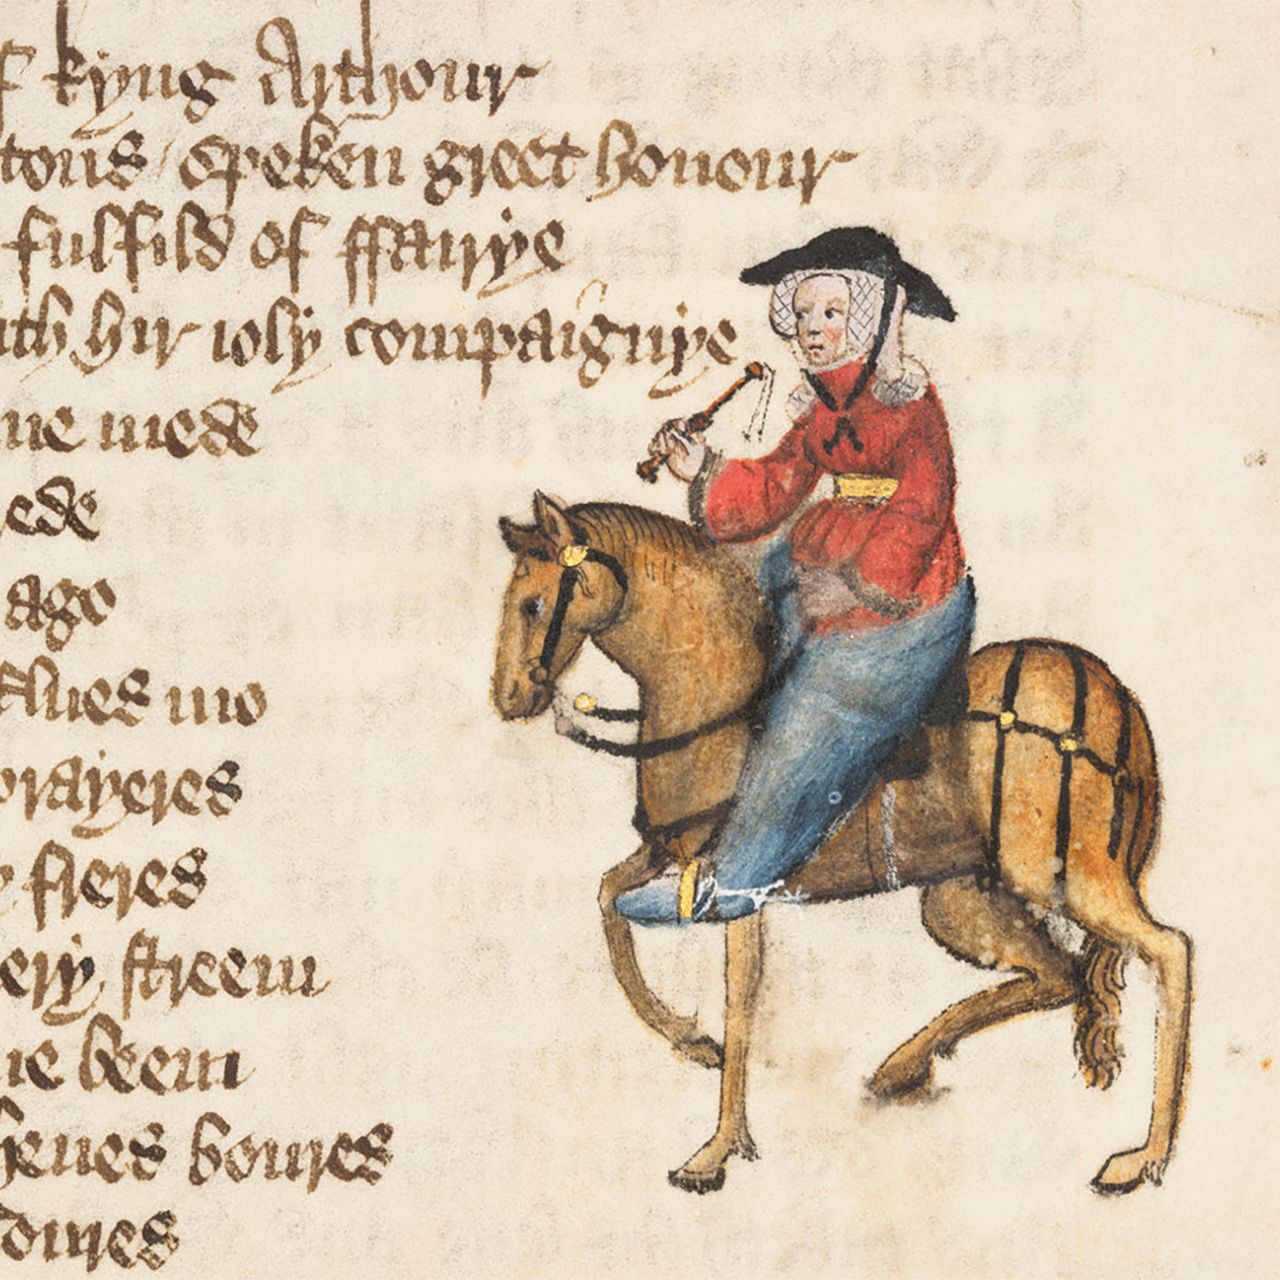 f kyng Arthour
tons / Speken greet honour
fulfild of ffairye
ith hir ioly compaignye
ne mede
ede
ago
Alues mo
prayeres
freres
ery streem
ne beem
henes boures
oures